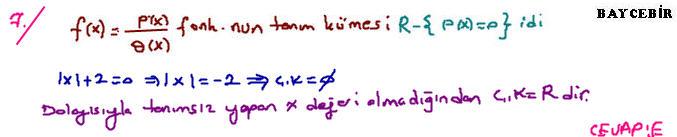 7./ f(x) = P(x)/Q(x) fonk.nun tanım kümesi R-{P(x)=0} idi
BAYCEBİR
|x|+2=0 ⇒ |x|=-2 ⇒ Ç.K=∅
Dolayısıyla tanımsız yapan x değeri olmadığından Ç.K=R dir.
CEVAP:E